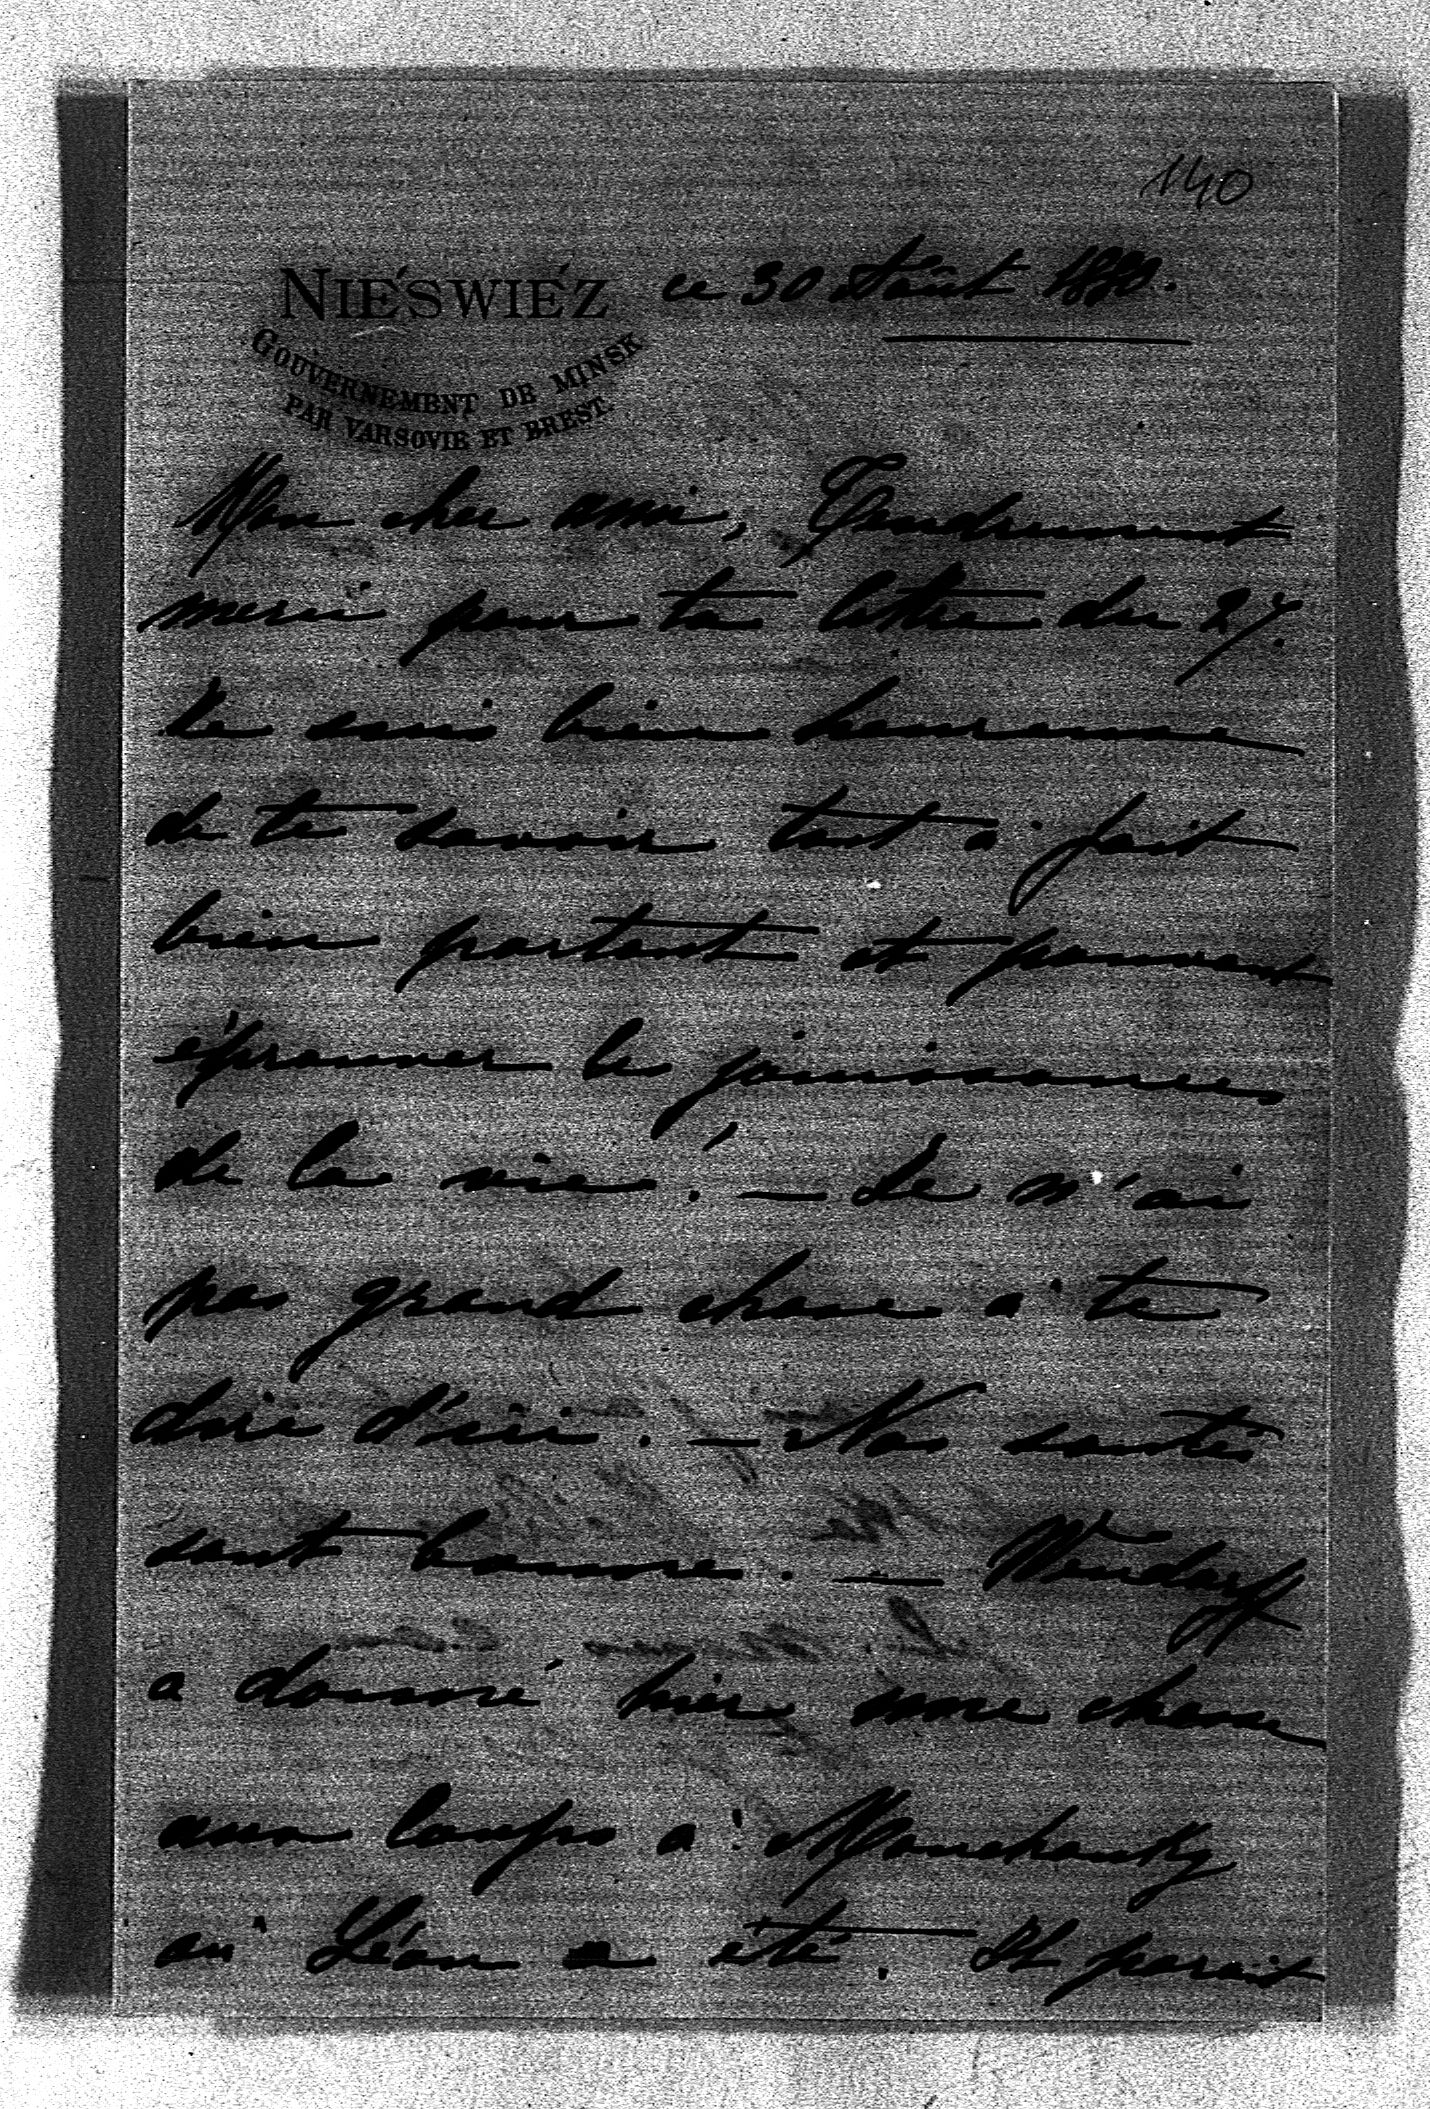 140
NIÉSWIÉZ ce 30 Août 1880.
GOUVERNEMENT DE MINSK
PAR VARSOVIE ET BREST.
Mon cher ami, Tendrement
merci pour ta lettre du 27.
Je suis bien heureuse
de te savoir tout à fait
bien portant et pouvant
éprouver les jouissances
de la vie! — Je n'ai
pas grand chose à te
dire d'ici. — Nos santés
sont bonnes. — Wendorff
a donné hier une chasse
aux loups à
où Léon a été. Il parait